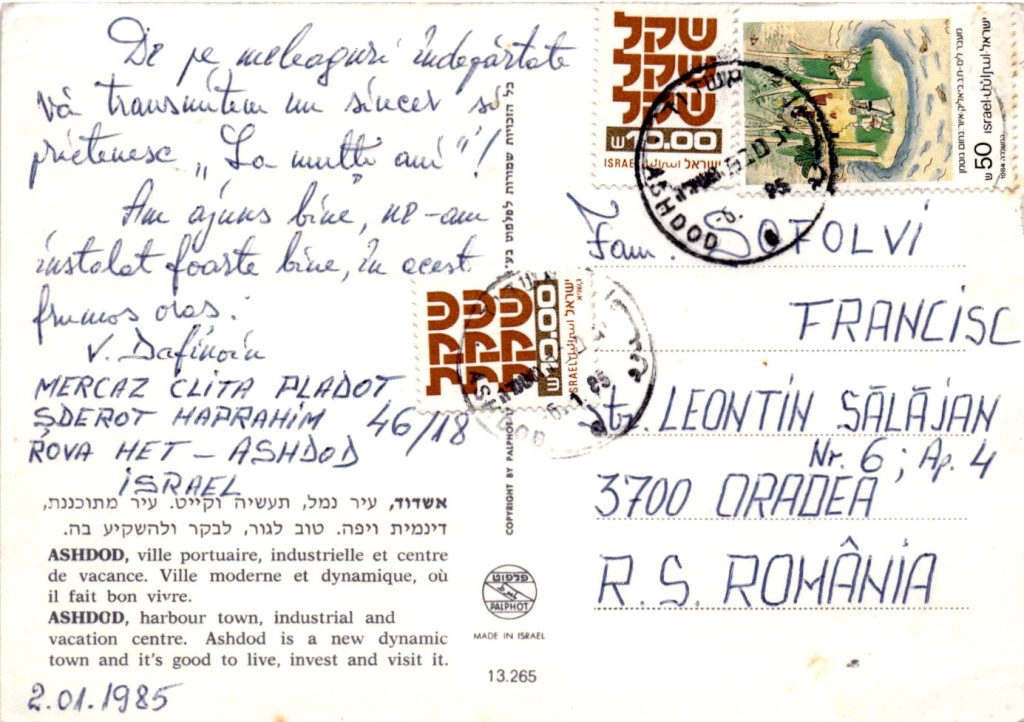 De pe meleaguri îndepărtate
vă transmitem un sincer și
prietenesc „La mulți ani"!
Am ajuns bine, ne-am
instalat foarte bine, în acest
frumos oraș.
V. Dafinoiu
MERCAZ CLITA PLADOT
ȘDEROT HAPRAHIM 46/18
ROVA HET - ASHDOD
ISRAEL
אשדוד, עיר נמל, תעשיה וקייט. עיר מתוכננת,
דינמית ויפה. טוב לגור, לבקר ולהשקיע בה.
ASHDOD, ville portuaire, industrielle et centre
de vacance. Ville moderne et dynamique, où
il fait bon vivre.
ASHDOD, harbour town, industrial and
vacation centre. Ashdod is a new dynamic
town and it's good to live, invest and visit it.
2.01.1985
כל הזכויות שמורות לפלפוט בע"מ
COPYRIGHT BY PALPHOT
פלפוט
PALPHOT
MADE IN ISRAEL
13.265
שקל
שקל
שקל
10.00
ISRAEL إسرائيل ישראל
ישראל إسرائيل israel
50
1984
ASHDOD
85
שקל
שקל
שקל
10.00
ISRAEL إسرائيل ישראל
ASHDOD
6.1.85
Fam. SOFOLVI
FRANCISC
Str. LEONTIN SĂLĂJAN
Nr. 6; Ap. 4
3700 ORADEA
R. S. ROMÂNIA